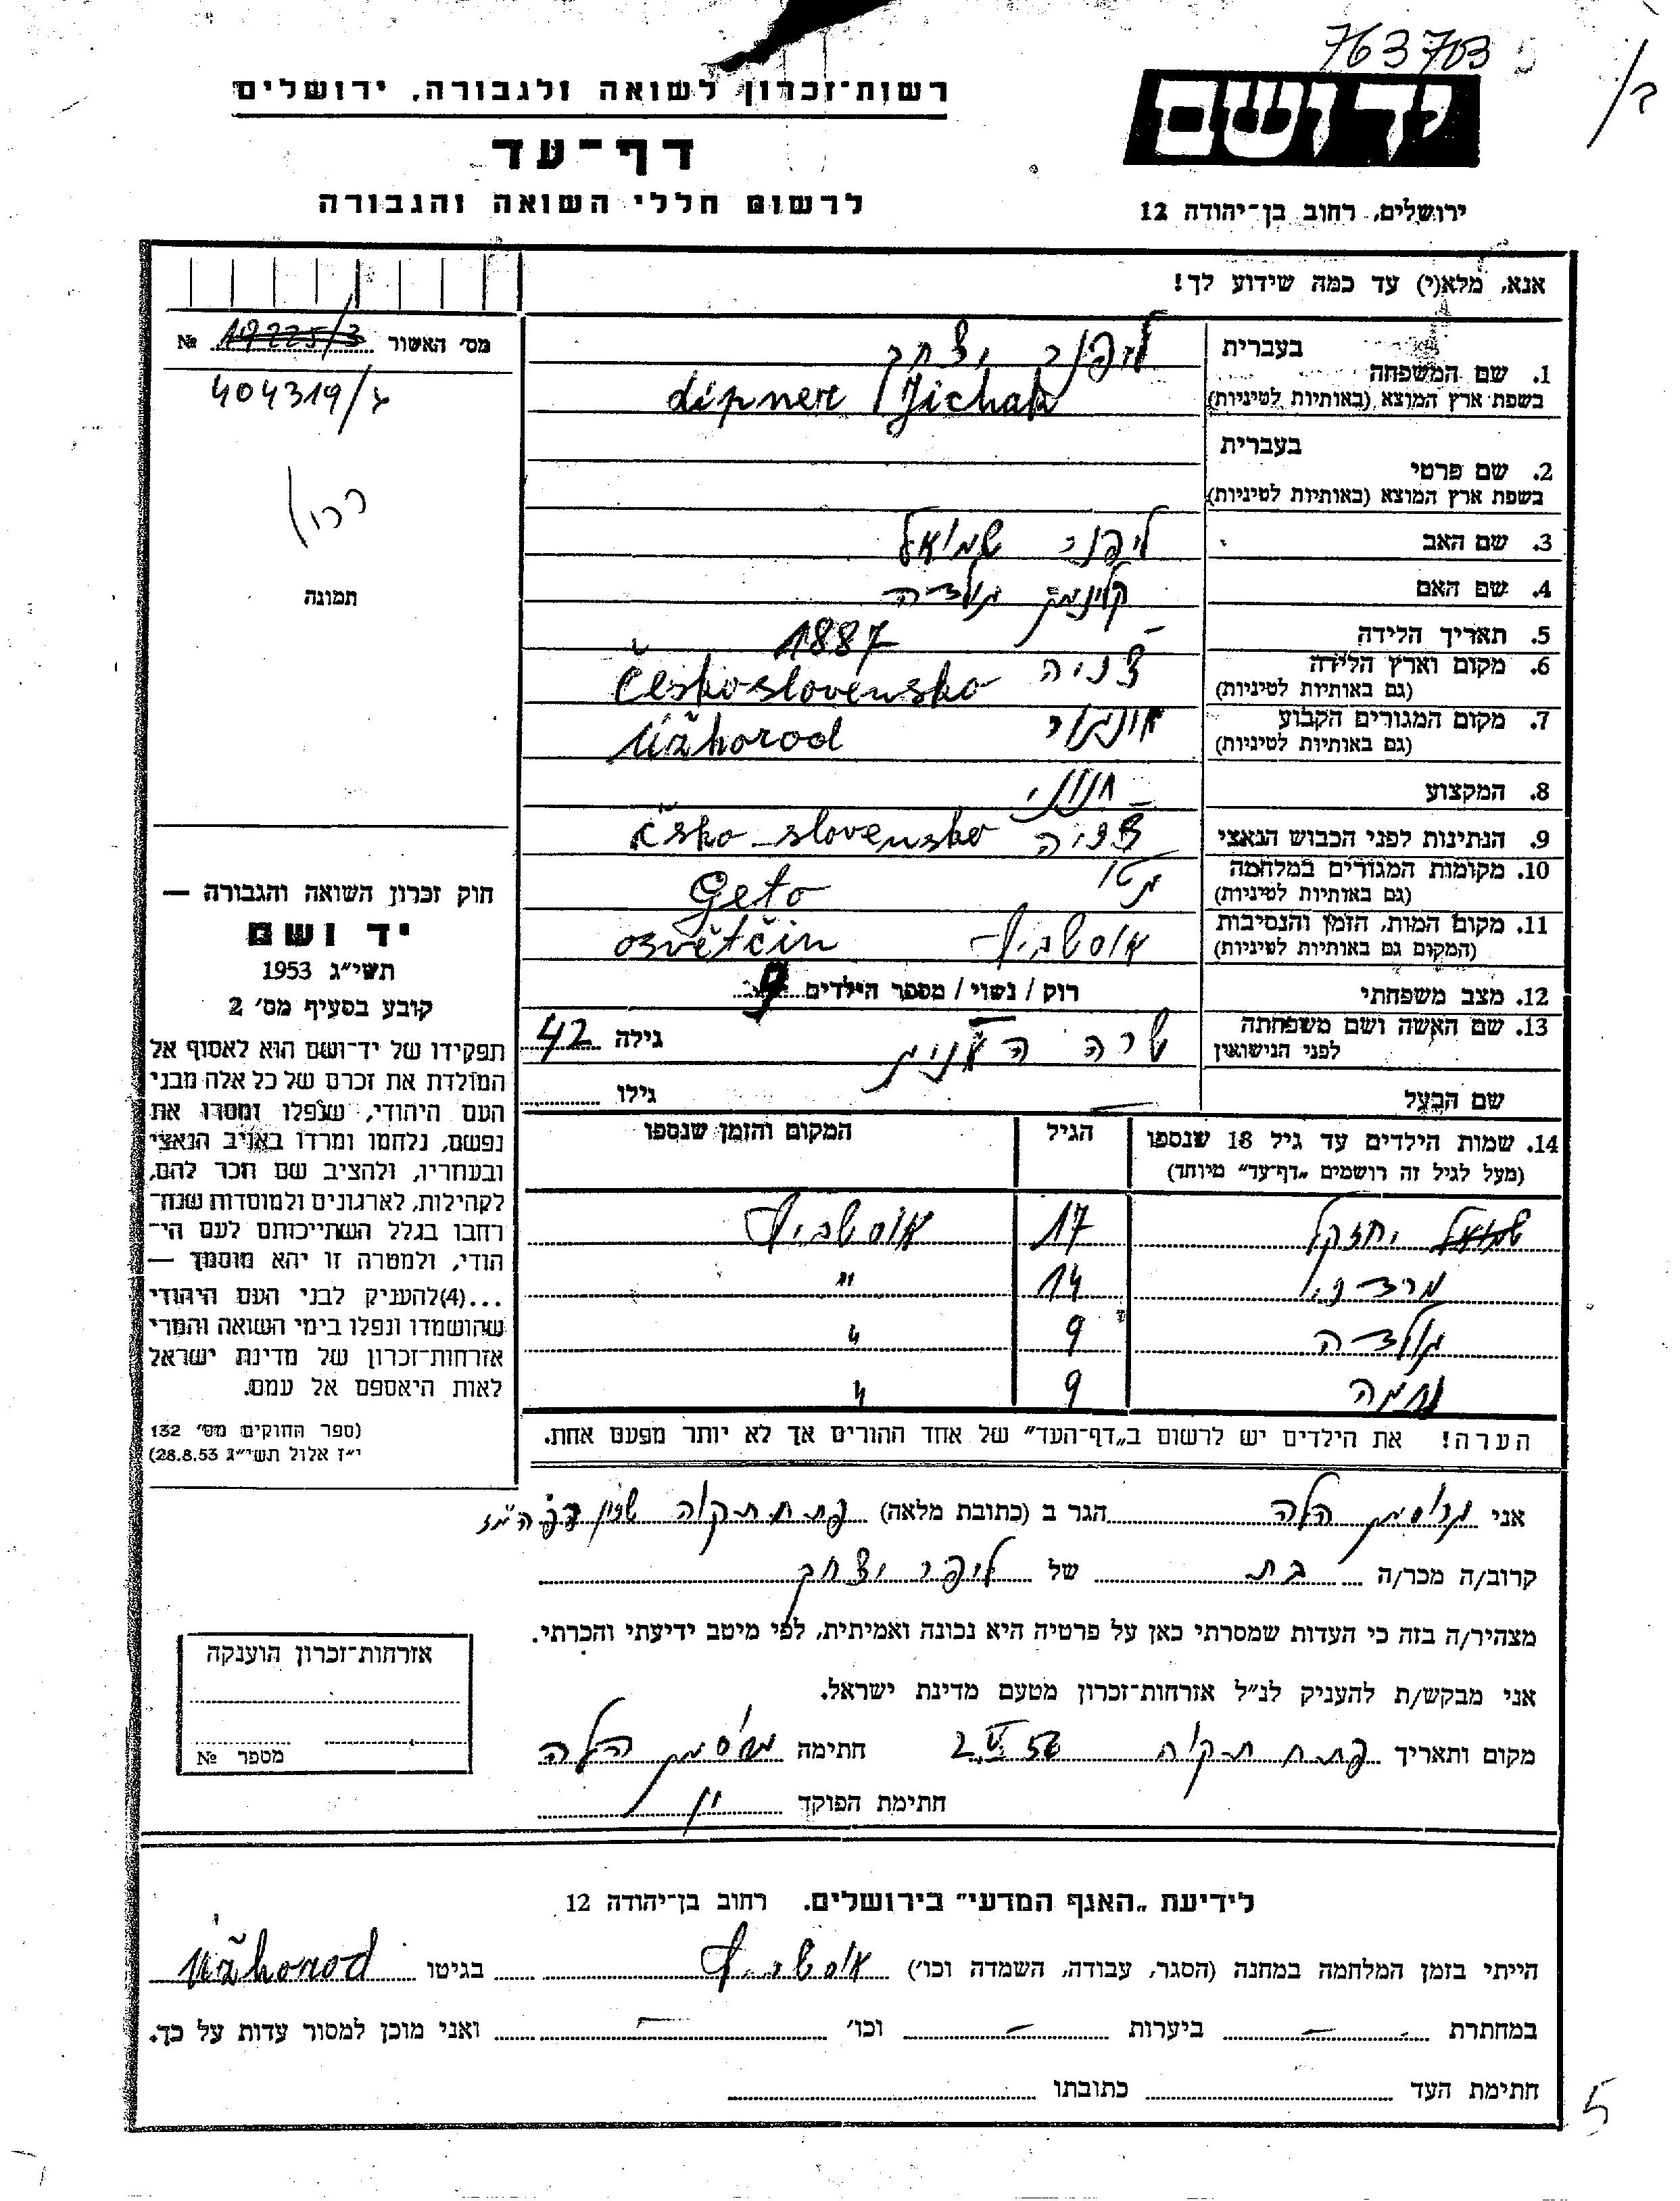 763703
רשות־זכרון לשואה ולגבורה, ירושלים
יד ושם
דף־עד
לרשום חללי השואה והגבורה
ירושלים, רחוב בן־יהודה 12
אנא, מלא(י) עד כמה שידוע לך!
מס׳ האשור 19225/3 №
404319/
תמונה
1. שם המשפחה
בעברית
יצחק
בשפת ארץ המוצא (באותיות לטיניות) Lipner Jichak
בעברית
2. שם פרטי
בשפת ארץ המוצא (באותיות לטיניות)
3. שם האב ליפנר שמואל
4. שם האם גולדה
5. תאריך הלידה 1887
6. מקום וארץ הלידה
(גם באותיות לטיניות) Československo
7. מקום המגורים הקבוע
(גם באותיות לטיניות) Užhorod
8. המקצוע חנוני
9. הנתינות לפני הכבוש הנאצי čsko-slovensko
10. מקומות המגורים במלחמה גטו
(גם באותיות לטיניות) Geto
11. מקום המות, הזמן והנסיבות
(המקום גם באותיות לטיניות) אושביץ osvětčin
12. מצב משפחתי רוק / נשוי / מספר הילדים 9
13. שם האשה ושם משפחתה
לפני הנישואין שרה גילה 42
שם הבעל גילו
14. שמות הילדים עד גיל 18 שנספו הגיל המקום והזמן שנספו
(מעל לגיל זה רושמים „דף־עד״ מיוחד)
שמואל יחזקל 17 אושביץ
14 "
גולדה 9 "
נחמה 9 "
הערה! את הילדים יש לרשום ב„דף־העד״ של אחד ההורים אך לא יותר מפעם אחת.
חוק זכרון השואה והגבורה —
יד ושם
תשי״ג 1953
קובע בסעיף מס׳ 2
תפקידו של יד־ושם הוא לאסוף אל
המולדת את זכרם של כל אלה מבני
העם היהודי, שנפלו ומסרו את
נפשם, נלחמו ומרדו באויב הנאצי
ובעוזריו, ולהציב שם וזכר להם,
לקהילות, לארגונים ולמוסדות שנח־
רבו בגלל השתייכותם לעם הי־
הודי, ולמטרה זו יהא מוסמך —
...(4)להעניק לבני העם היהודי
שהושמדו ונפלו בימי השואה והמרי
אזרחות־זכרון של מדינת ישראל
לאות היאספם אל עמם.
(ספר החוקים מס׳ 132
י״ז אלול תשי״ג 28.8.53)
אני גרוסמן הלה הגר ב (כתובת מלאה) פתח תקוה
קרוב/ה מכר/ה בת של ליפנר יצחק
מצהיר/ה בזה כי העדות שמסרתי כאן על פרטיה היא נכונה ואמיתית, לפי מיטב ידיעתי והכרתי.
אני מבקש/ת להעניק לנ״ל אזרחות־זכרון מטעם מדינת ישראל.
מקום ותאריך פתח תקוה חתימה גרוסמן הלה
חתימת הפוקד
אזרחות־זכרון הוענקה
מספר №
לידיעת „האגף המדעי״ בירושלים. רחוב בן־יהודה 12
הייתי בזמן המלחמה במחנה (הסגר, עבודה, השמדה וכו׳) אושביץ בגיטו Užhorod
במחתרת — ביערות — וכו׳ — ואני מוכן למסור עדות על כך.
חתימת העד כתובתו
5